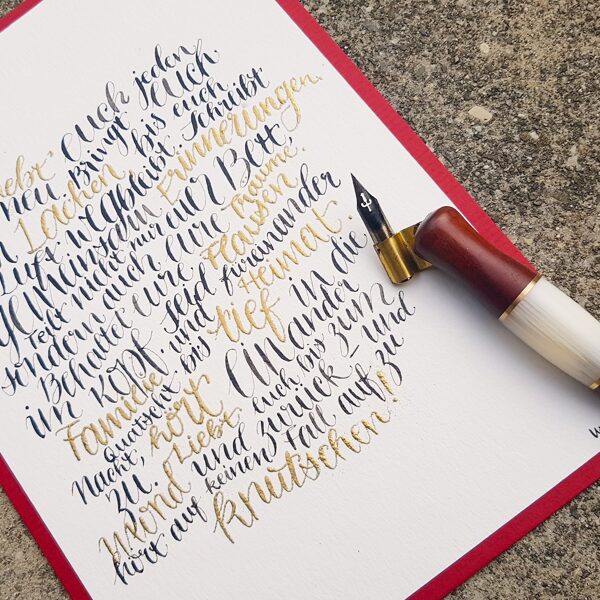 euch jeden
neu. Bringt euch
Lachen, bis euch
Luft wegbleibt. Schreibt
gemeinsam Erinnerungen.
Teilt nicht nur euer Bett,
sondern auch eure Träume.
Behaltet eure Flausen
im Kopf. Seid füreinander
Familie und Heimat.
Quatscht bis tief in die
Nacht, hört einander
zu. Liebt euch bis zum
Mond und zurück – und
hört auf keinen Fall auf zu
knutschen!